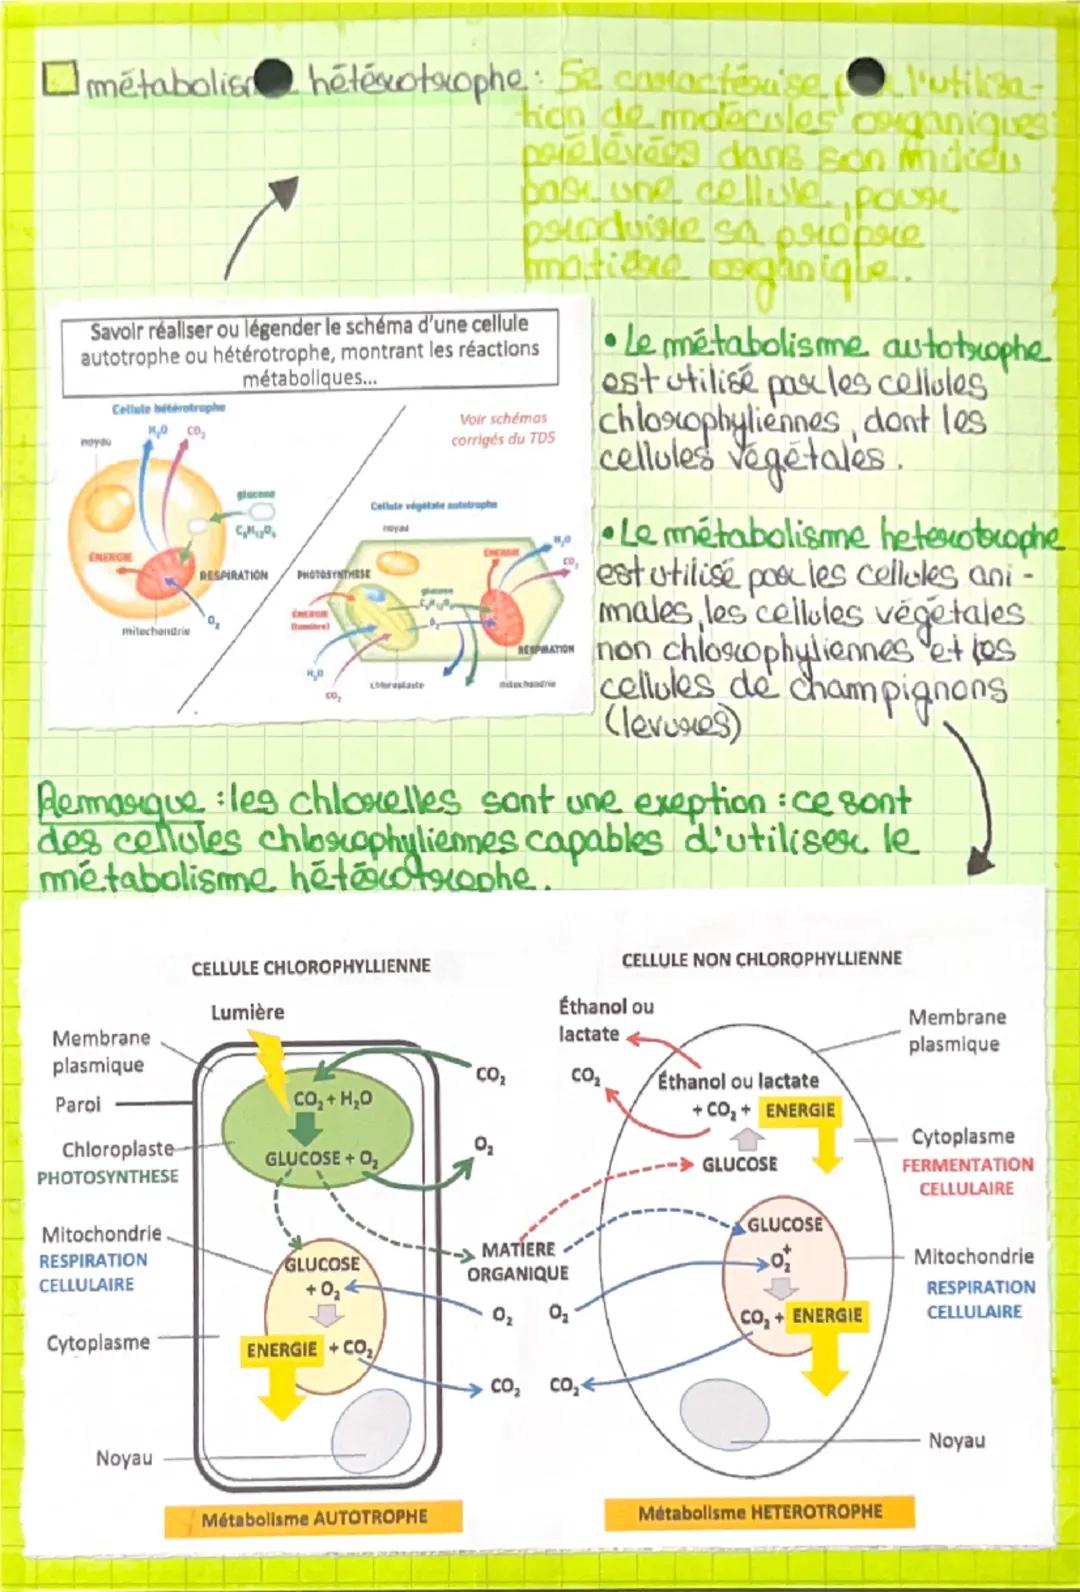 hétérotrophe : Se caractérise l'utilisa-
tion de molécules organiques
prélévées dans son milieu
par une cellule, pour
produire sa propre
matière organique.
Savoir réaliser ou légender le schéma d'une cellule
autotrophe ou hétérotrophe, montrant les réactions
métaboliques...
Cellule hétérotrophe
H₂O CO₂
noyau
glucose
C₆H₁₂O₆
ENERGIE
RESPIRATION
O₂
mitochondrie
Voir schémas
corrigés du TD5
Cellule végétale autotrophe
noyau
H₂O
ENERGIE
CO₂
PHOTOSYNTHESE
glucose
C₆H₁₂O₆
ENERGIE
(lumière)
O₂
RESPIRATION
H₂O
chloroplaste
mitochondrie
CO₂
• Le métabolisme autotrophe
est utilisé par les cellules
chlorophyliennes, dont les
cellules végétales.
• Le métabolisme heterotrophe
est utilisé par les cellules ani-
males, les cellules végétales
non chlorophyliennes et les
cellules de champignons
(levures)
Remarque : les chlorelles sont une exeption : ce sont
des cellules chlorophyliennes capables d'utiliser le
métabolisme hétérotrophe.
CELLULE CHLOROPHYLLIENNE
Lumière
Membrane
plasmique
Paroi
CO₂
CO₂ + H₂O
Chloroplaste
PHOTOSYNTHESE
GLUCOSE + O₂
O₂
Mitochondrie
RESPIRATION
CELLULAIRE
GLUCOSE
+ O₂
MATIERE
ORGANIQUE
O₂
Cytoplasme
ENERGIE + CO₂
CO₂
Noyau
Métabolisme AUTOTROPHE
CELLULE NON CHLOROPHYLLIENNE
Éthanol ou
lactate
Membrane
plasmique
CO₂
Éthanol ou lactate
+ CO₂ + ENERGIE
GLUCOSE
Cytoplasme
FERMENTATION
CELLULAIRE
GLUCOSE
+
O₂
Mitochondrie
RESPIRATION
CELLULAIRE
O₂
CO₂ + ENERGIE
CO₂
Noyau
Métabolisme HETEROTROPHE